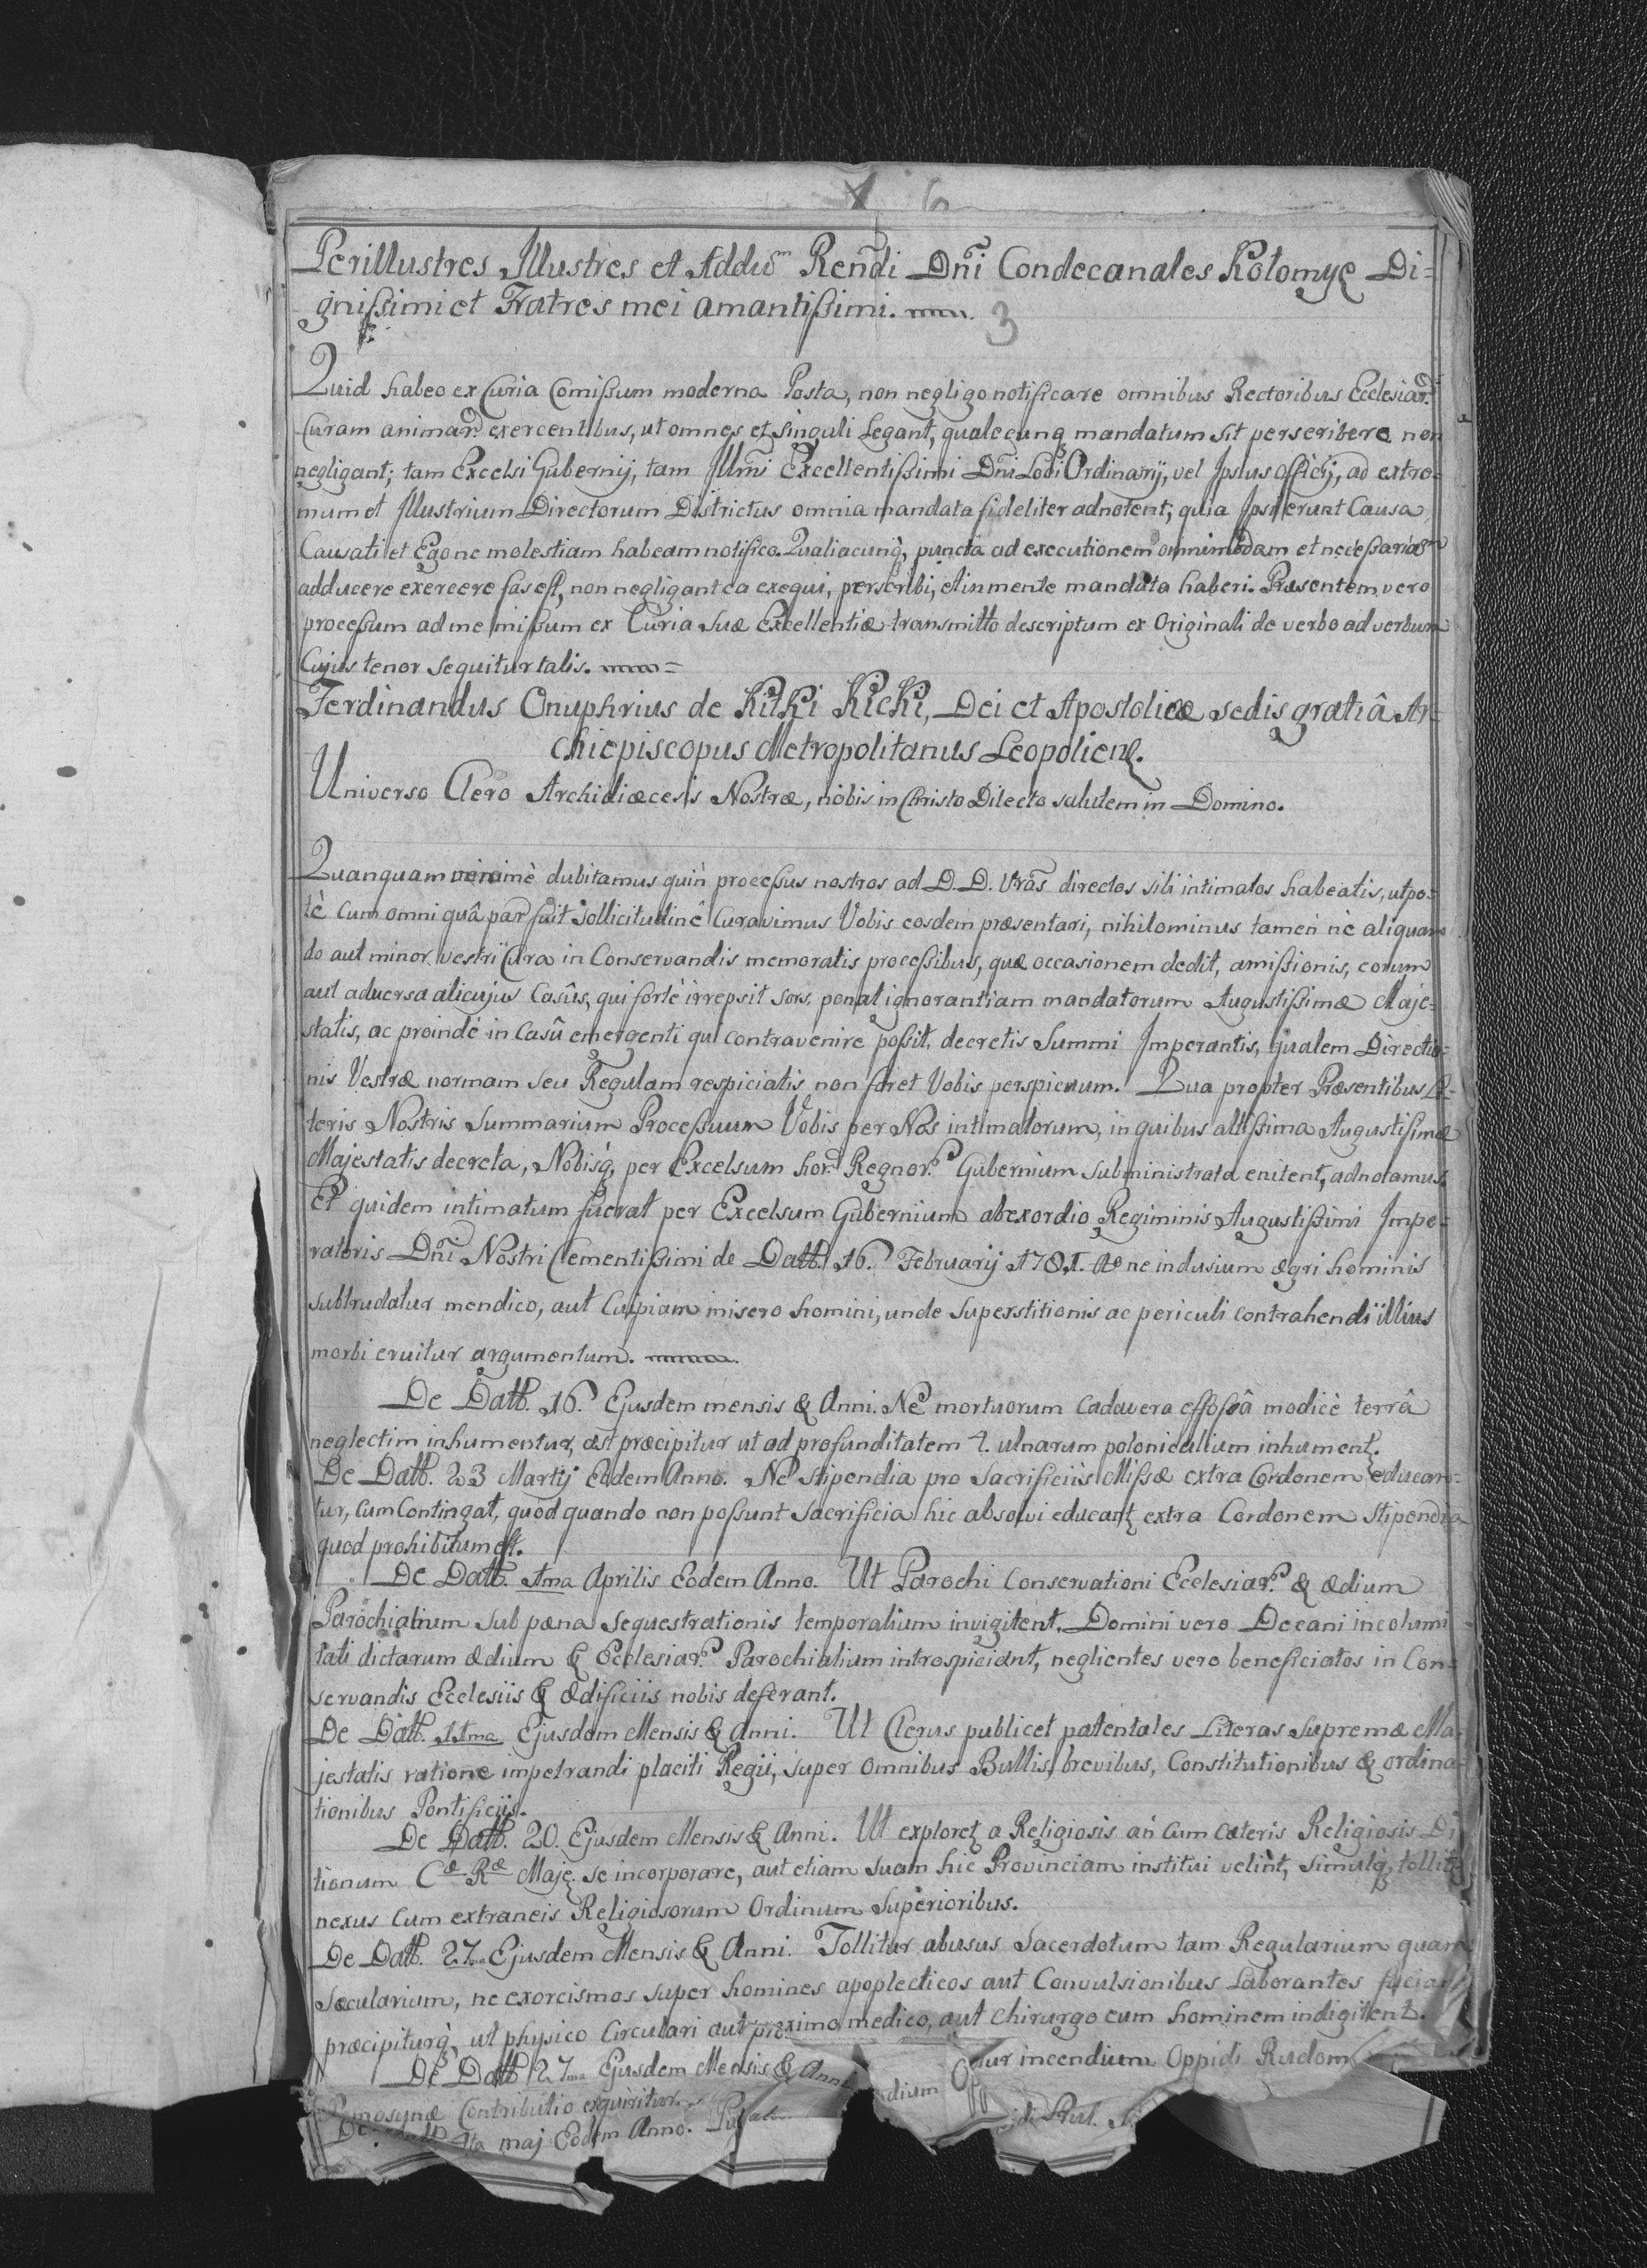 6
Perillustres Illustres et Addm Rendi Dni Condecanales Kołomyę Di=
gnißimi et Fratres mei amantißimi.
3
Quid habeo ex Curia Comißum moderna Posta, non negligo notificare omnibus Rectoribus Ecclesiar.
Curam animar. exercentibus, ut omnes et singuli Legant, qualecunq mandatum sit perscribere non
negligant; tam Excelsi Gubernij, tam Illmi Excellentißimi Dni Loci Ordinarij, vel Ipsius officij, ad extre=
mum et Illustrium Directorum Districtus omnia mandata fideliter adnotent, quia Ipsi erunt Causa
Causati et Ego ne molestiam habeam notifico. Qualiacunq, puncta ad executionem omnimodam et neceßariam
adducere exercere fas est, non negligant ea exequi, perscribi, et in mente mandata haberi. Præsentem vero
proceßum ad me mißum ex Curia Suæ Excellentiæ transmitto descriptum ex Originali de verbo ad verbum
Cujus tenor sequitur talis. =
Ferdinandus Onuphrius de Kitki Kicki, Dei et Apostolicæ sedis gratiâ Ar=
chiepiscopus Metropolitanus Leopolien.
Universo Clero Archidiæcesis Nostræ, nobis in Christo Dilecto salutem in Domino.
Quanquam minimè dubitamus quin proceßus nostros ad D. D. Vras directos sibi intimatos habeatis, utpo=
tè Cum omni quâ par fuit sollicitudinê Curavimus Vobis eosdem præsentari, nihilominus tamen nè aliquan
do aut minor vestri Cura in Conservandis memoratis proceßibus, quæ occasionem dedit, amißionis, eorum
aut adversa alicujus Casûs, qui fortè irrepsit sors, ponat ignorantiam mandatorum Augustißimæ Maje=
statis, ac proindè in Casû emergenti qui contravenire poßit, decretis Summi Imperantis, qualem Directio=
nis Vestræ normam seu Regulam respiciatis non foret Vobis perspicuum. Qua propter Præsentibus Li=
teris Nostris Summarium Proceßuum Vobis per Nos intimatorum, in quibus altißima Augustißimæ
Majestatis decreta, Nobisq, per Excelsum hor. Regnor. Gubernium subministrata enitent, adnotamus.
Et quidem intimatum fuerat per Excelsum Gubernium ab exordio Regiminis Augustißimi Impe=
ratoris Dni Nostri Clementißimi de Datt. 16. Februarij 1781. ne indusium ægri hominis
subtrudatur mendico, aut Cuipiam misero homini, unde Superstitionis ac periculi contrahendi illius
morbi eruitur argumentum.
De Datt. 16. Ejusdem mensis & Anni. Ne mortuorum Cadavera effoßâ modicè terrâ
neglectim inhumentur, ast præcipitur ut ad profunditatem 4. ulnarum polonicalium inhument.
De Datt. 23 Martij Eodem Anno. Ne Stipendia pro Sacrificiis Mißæ extra Cordonem educan=
tur, Cum Contingat, quod quando non poßunt Sacrificia hic absolvi educant extra Cordonem Stipendia
quod prohibitum est.
De Datt. 1ma Aprilis Eodem Anno. Ut Parochi Conservationi Ecclesiar. & ædium
Parochialium sub pæna Sequestrationis temporalium invigilent. Domini vero Decani incolumi
tati dictarum ædium & Ecclesiar. Parochialium introspiciant, neglientes vero beneficiatos in Con=
servandis Ecclesiis & ædificiis nobis deferant.
De Datt. 11ma Ejusdem Mensis & Anni. Ut Clerus publicet patentales Literas Supremæ Ma
jestatis ratione impetrandi placiti Regii, super omnibus Bullis, brevibus, Constitutionibus & ordina
tionibus Pontificijs.
De Datt. 20. Ejusdem Mensis & Anni. Ut exploret a Religiosis an Cum Cæteris Religiosis Di
tionum Cæ Ræ Maje. se incorporare, aut etiam suam hic Provinciam institui velint, simulq, tollit
nexus Cum extraneis Religiosorum Ordinum Superioribus.
De Datt. 27ma Ejusdem Mensis & Anni. Tollitur abusus Sacerdotum tam Regularium quam
Sæcularium, ne exorcismos super homines apoplecticos aut Convulsionibus Laborantes facia
præcipiturq, ut physico Circulari aut proximo medico, aut Chirurgo eum hominem indigitent.
De Datt 27ma Ejusdem Mensis & Anni tur incendium Oppidi Rudom
dium Opp
mosynæ Contributio exquiritur.
De Datt 4ta maj Eodem Anno.